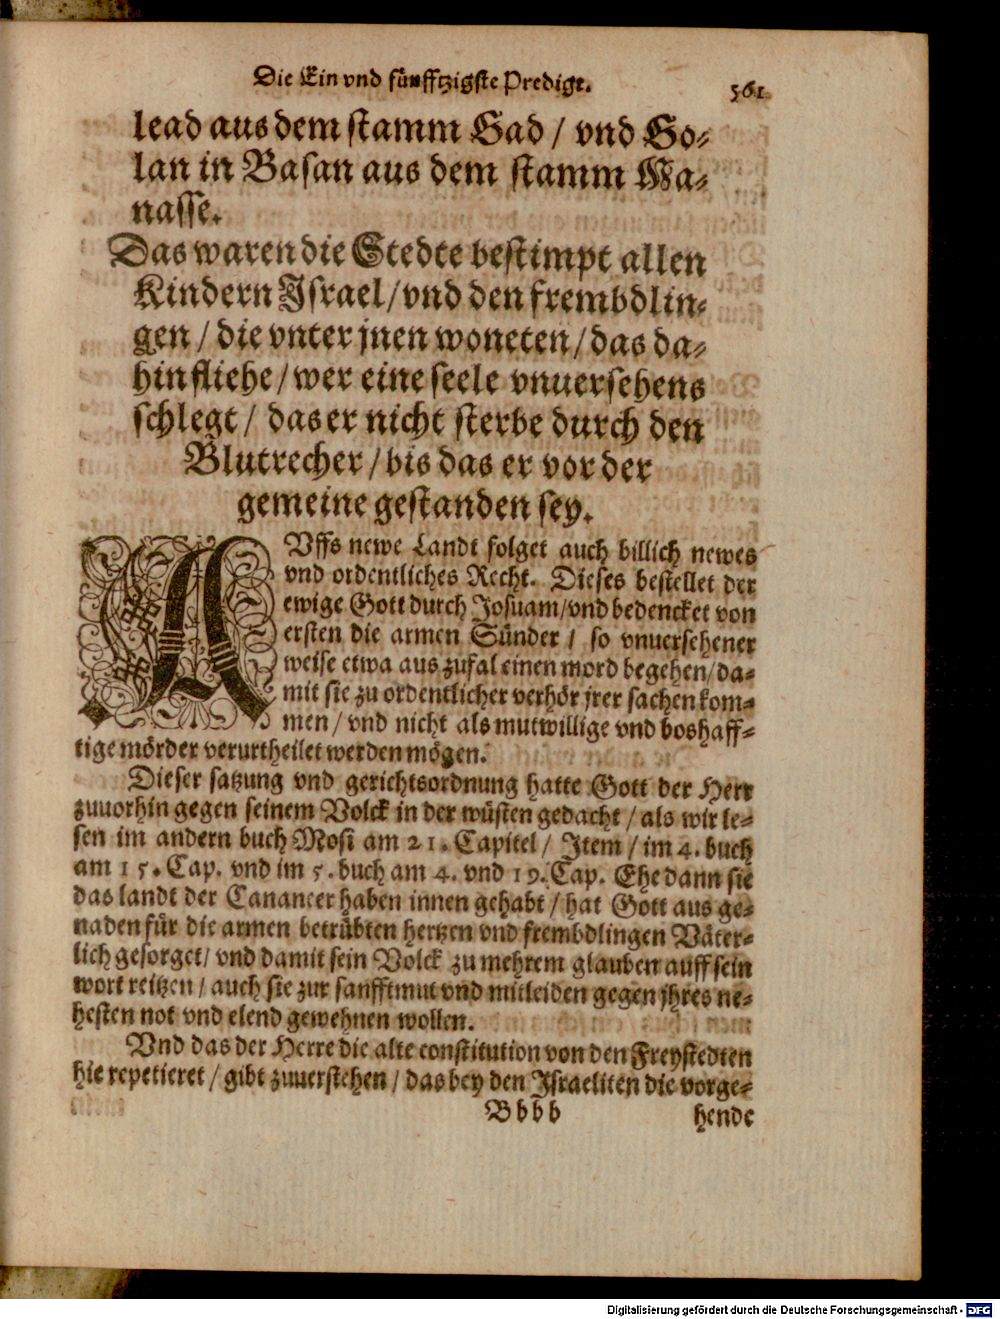 Die Ein vnd fünfftzigste Predigt. 561.
lead aus dem stamm Gad / vnd Go⸗
lan in Basan aus dem stamm Ma⸗
nasse.
Das waren die Stedte bestimpt allen
Kindern Israel / vnd den frembdlin⸗
gen / die vnter jnen woneten / das da⸗
hin fliehe / wer eine seele vnuersehens
schlegt / das er nicht sterbe durch den
Blutrecher / bis das er vor der
gemeine gestanden sey.
AVffs newe Landt folget auch billich newes
vnd ordentliches Recht. Dieses bestellet der
ewige Gott durch Josuam / vnd bedencket von
ersten die armen Sünder / so vnuersehener
weise etwa aus zufal einen mord begehen / da⸗
mit sie zu ordentlicher verhör jrer sachen kom⸗
men / vnd nicht als mutwillige vnd boshaff⸗
tige mörder verurtheilet werden mögen.
Dieser satzung vnd gerichtsordnung hatte Gott der Herr
zuuorhin gegen seinem Volck in der wüsten gedacht / als wir le⸗
sen im andern buch Mosi am 21. Capitel / Item / im 4. buch
am 15. Cap. vnd im 5. buch am 4. vnd 19. Cap. Ehe dann sie
das landt der Cananeer haben innen gehabt / hat Gott aus ge⸗
naden für die armen betrübten hertzen vnd frembdlingen Väter⸗
lich gesorget / vnd damit sein Volck zu mehrem glauben auff sein
wort reitzen / auch sie zur sanfftmut vnd mitleiden gegen jhres ne⸗
hesten not vnd elend gewehnen wollen.
Vnd das der Herre die alte constitution von den Freystedten
hie repetieret / gibt zuuerstehen / das bey den Israeliten die vorge⸗
Bbbb hende
Digitalisierung gefördert durch die Deutsche Forschungsgemeinschaft - DFG